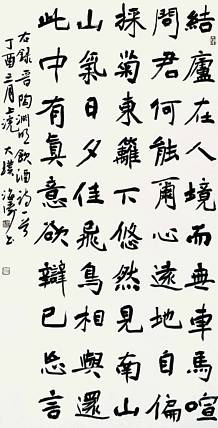 結廬在人境而無車馬喧
問君何能爾心遠地自偏
採菊東籬下悠然見南山
山氣日夕佳飛鳥相與還
此中有眞意欲辯已忘言
右錄晉陶淵明飲酒詩一首
丁酉三月上浣大璞海濤書